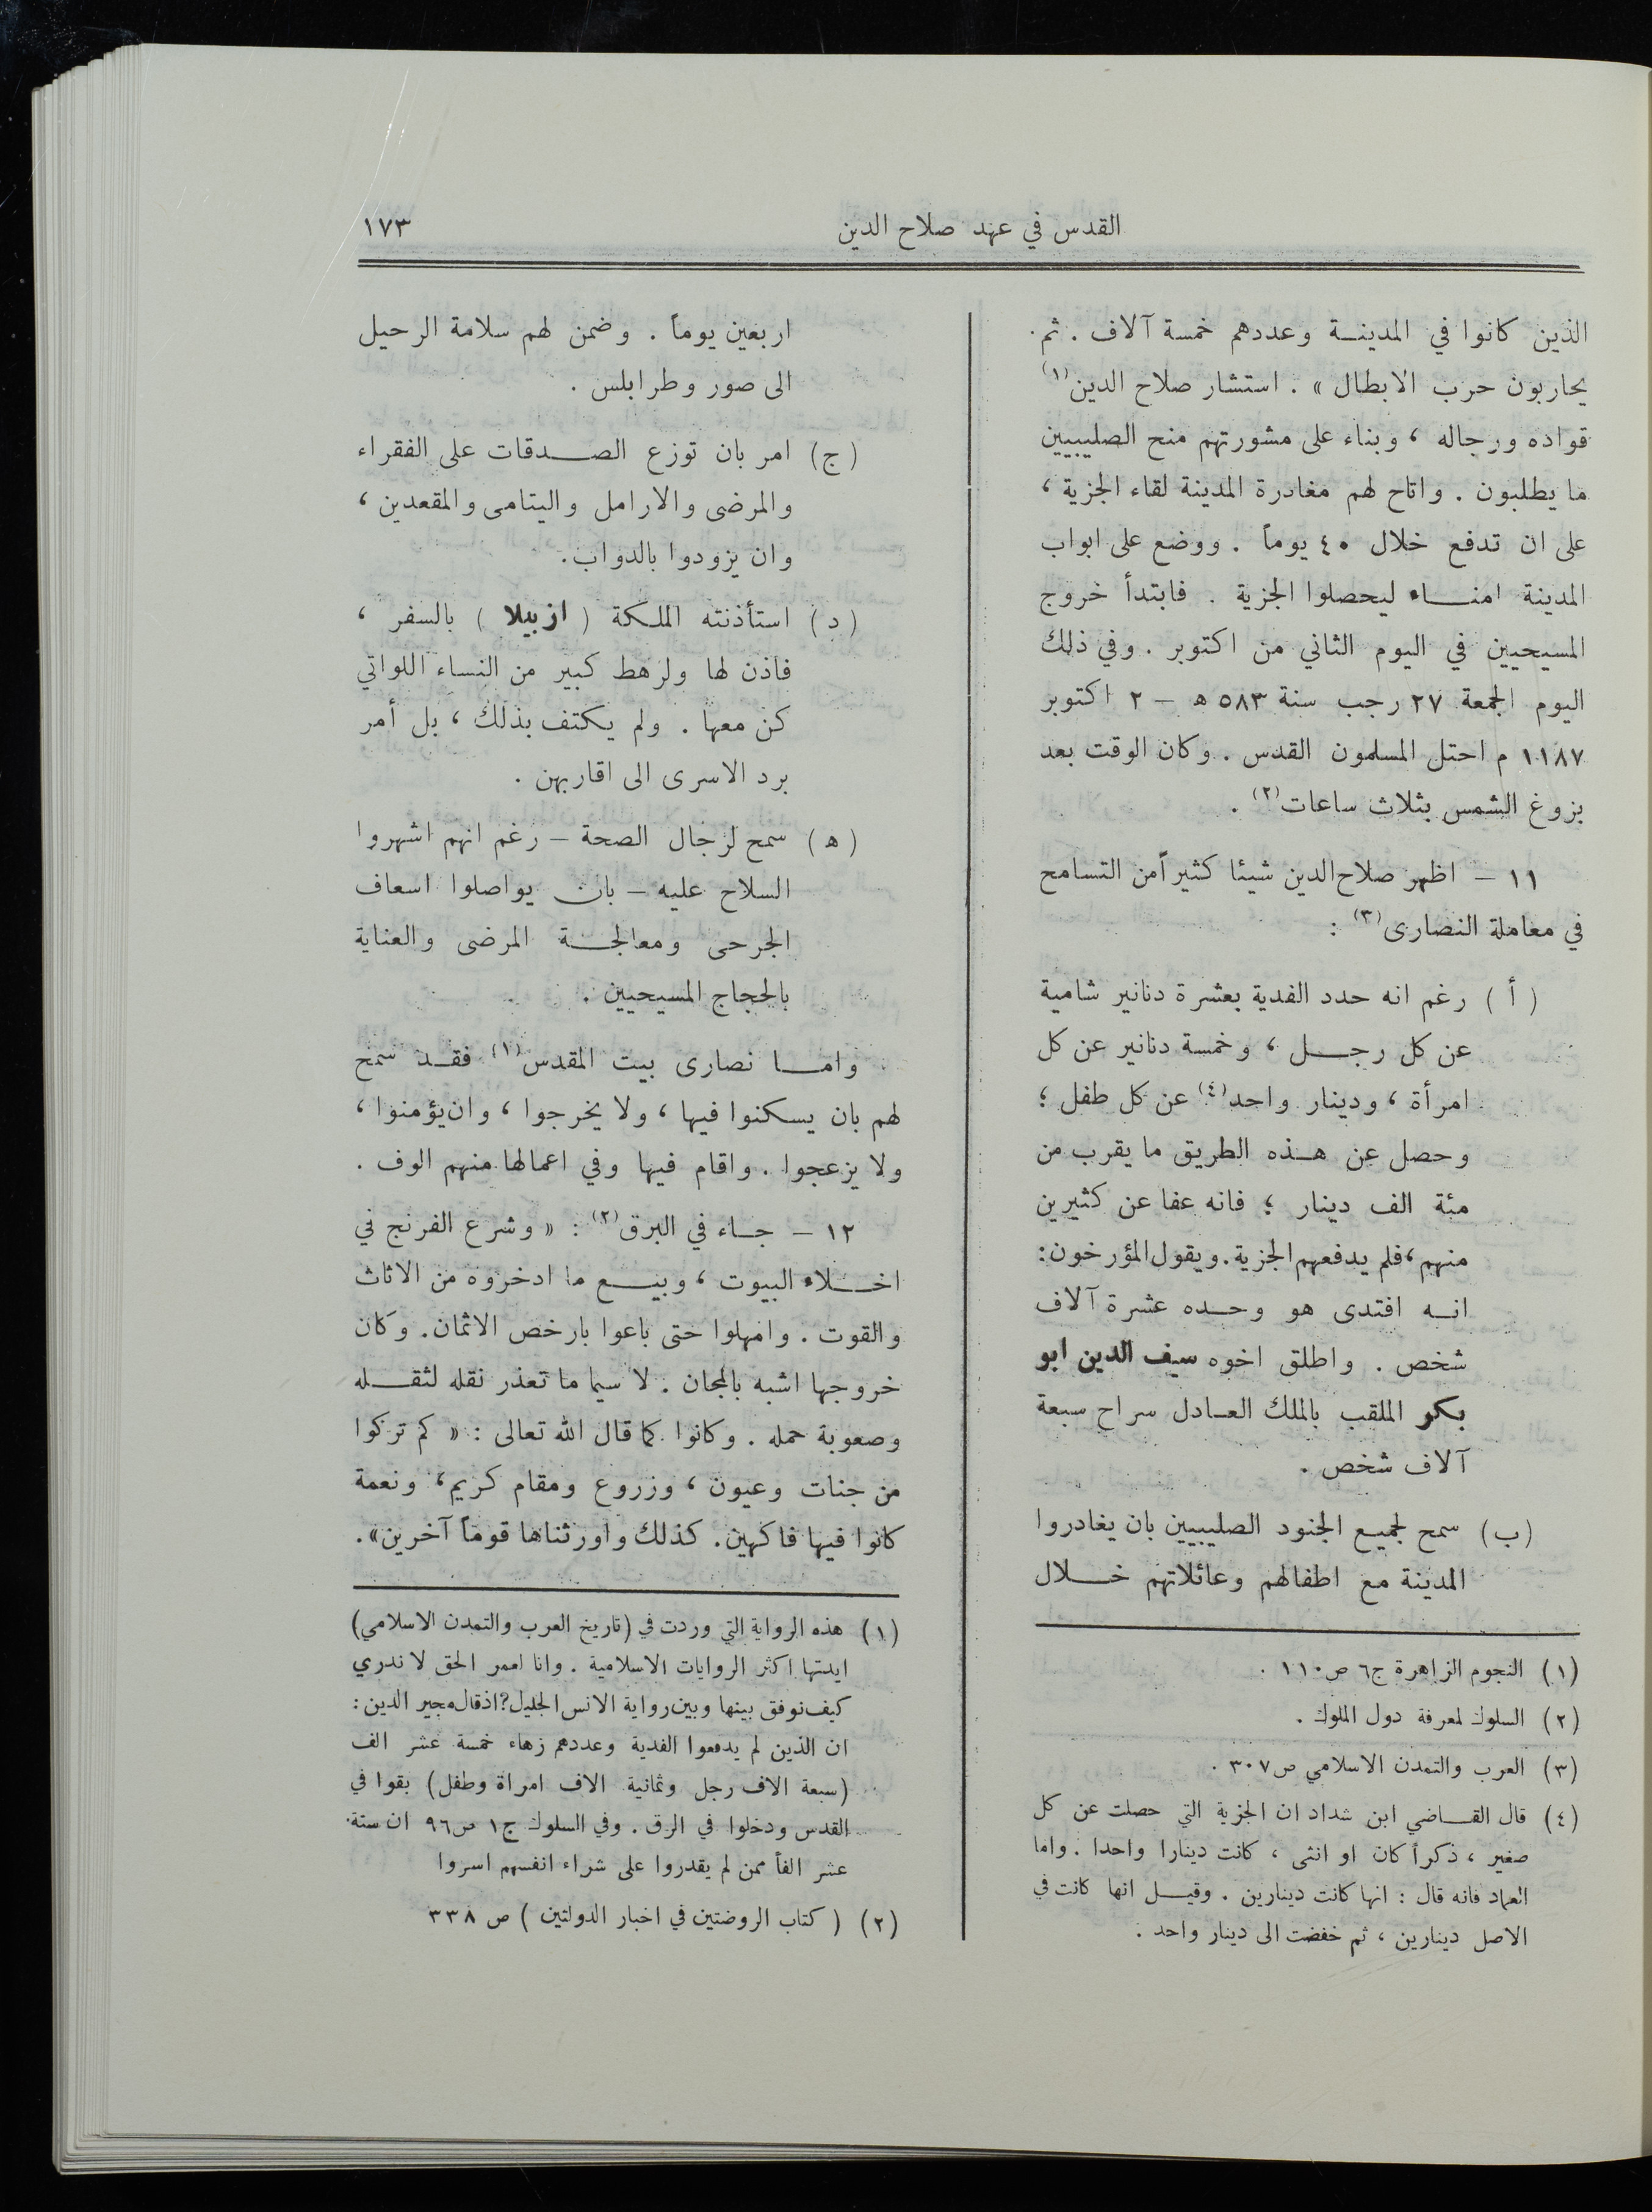 القدس في عهد صلاح الدين
١٧٣
الذين كانوا في المدينة وعددهم خمسة آلاف . ثم
يحاربون حرب الابطال » . استشار صلاح الدين(١)
قواده ورجاله ، وبناء على مشورتهم منح الصليبيين
ما يطلبون . واتاح لهم مغادرة المدينة لقاء الجزية ،
على ان تدفع خلال ٤٠ يوماً . ووضع على ابواب
المدينة امناء ليحصلوا الجزية . فابتدأ خروج
المسيحيين في اليوم الثاني من اكتوبر . وفي ذلك
اليوم الجمعة ٢٧ رجب سنة ٥٨٣ ه – ٢ اكتوبر
١١٨٧ م احتل المسلمون القدس . وكان الوقت بعد
بزوغ الشمس بثلاث ساعات(٢) .
١١ – اظهر صلاح الدين شيئا كثيراً من التسامح
في معاملة النصارى(٣) :
( أ ) رغم انه حدد الفدية بعشرة دنانير شامية
عن كل رجل ، وخمسة دنانير عن كل
امرأة ، ودينار واحد(٤) عن كل طفل ؛
وحصل عن هذه الطريق ما يقرب من
مئة الف دينار ؛ فانه عفا عن كثيرين
منهم ، فلم يدفعهم الجزية . ويقول المؤرخون :
انه افتدى هو وحده عشرة آلاف
شخص . واطلق اخوه سيف الدين ابو
بكر الملقب بالملك العادل سراح سبعة
آلاف شخص .
(ب) سمح لجميع الجنود الصليبيين بان يغادروا
المدينة مع اطفالهم وعائلاتهم خلال
(١) النجوم الزاهرة ج٦ ص١١٠ .
(٢) السلوك لمعرفة دول الملوك .
(٣) العرب والتمدن الاسلامي ص٣٠٧ .
(٤) قال القاضي ابن شداد ان الجزية التي حصلت عن كل
صغير ، ذكراً كان او انثى ، كانت دينارا واحدا . واما
العماد فانه قال : انها كانت دينارين . وقيل انها كانت في
الاصل دينارين ، ثم خفضت الى دينار واحد .
اربعين يوماً . وضمن لهم سلامة الرحيل
الى صور وطرابلس .
(ج) امر بان توزع الصدقات على الفقراء
والمرضى والارامل واليتامى والمقعدين ،
وان يزودوا بالدواب .
(د) استأذنته الملكة ( ازبيلا ) بالسفر ،
فاذن لها ولرهط كبير من النساء اللواتي
كن معها . ولم يكتف بذلك ، بل أمر
برد الاسرى الى اقاربهن .
(ه) سمح لرجال الصحة – رغم انهم اشهروا
السلاح عليه – بان يواصلوا اسعاف
الجرحى ومعالجة المرضى والعناية
بالحجاج المسيحيين .
واما نصارى بيت المقدس(١) فقد سمح
لهم بان يسكنوا فيها ، ولا يخرجوا ، وان يؤمنوا ،
ولا يزعجوا . واقام فيها وفي اعمالها منهم الوف .
١٢ – جاء في البرق(٢) : « وشرع الفرنج في
اخلاء البيوت ، وبيع ما ادخروه من الاثاث
والقوت . وامهلوا حتى باعوا بارخص الاثمان . وكان
خروجها اشبه بالمجان . لا سيما ما تعذر نقله لثقله
وصعوبة حمله . وكانوا كما قال الله تعالى : « كم تركوا
من جنات وعيون ، وزروع ومقام كريم ، ونعمة
كانوا فيها فاكهين . كذلك واورثناها قوماً آخرين » .
(١) هذه الرواية التي وردت في (تاريخ العرب والتمدن الاسلامي)
ايدتها اكثر الروايات الاسلامية . وانا لعمر الحق لا ندري
كيف نوفق بينها وبين رواية الانس الجليل ؟ اذ قال مجير الدين :
ان الذين لم يدفعوا الفدية وعددهم زهاء خمسة عشر الف
(سبعة الاف رجل وثمانية الاف امراة وطفل) بقوا في
القدس ودخلوا في الرق . وفي السلوك ج١ ص٩٦ ان ستة
عشر الفاً ممن لم يقدروا على شراء انفسهم اسروا
(٢) ( كتاب الروضتين في اخبار الدولتين ) ص ٣٣٨